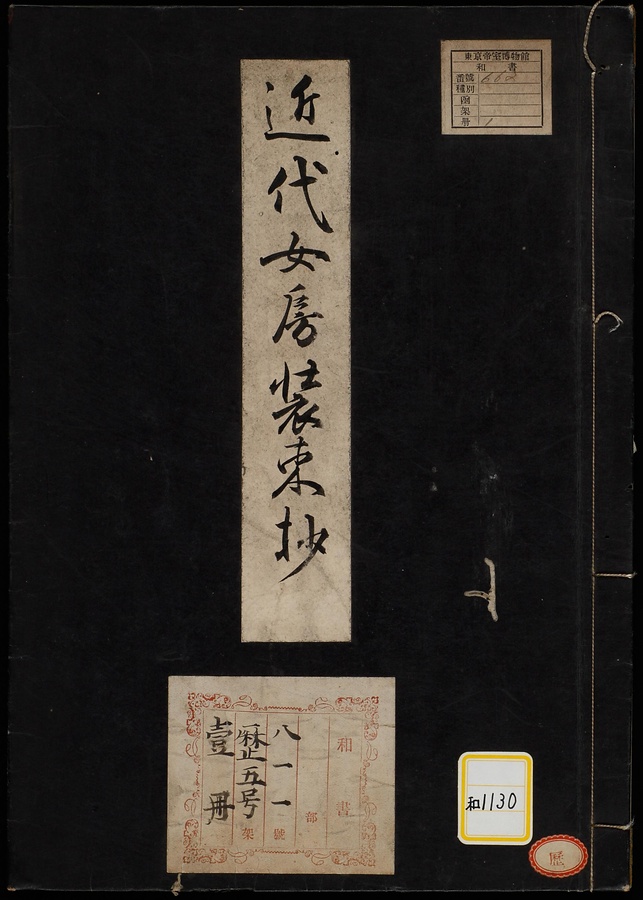 東京帝室博物館
和書
番號
種別
函
架
冊 1
近代女房装束抄
和書
部
八一一號
五号架
壹冊
和1130